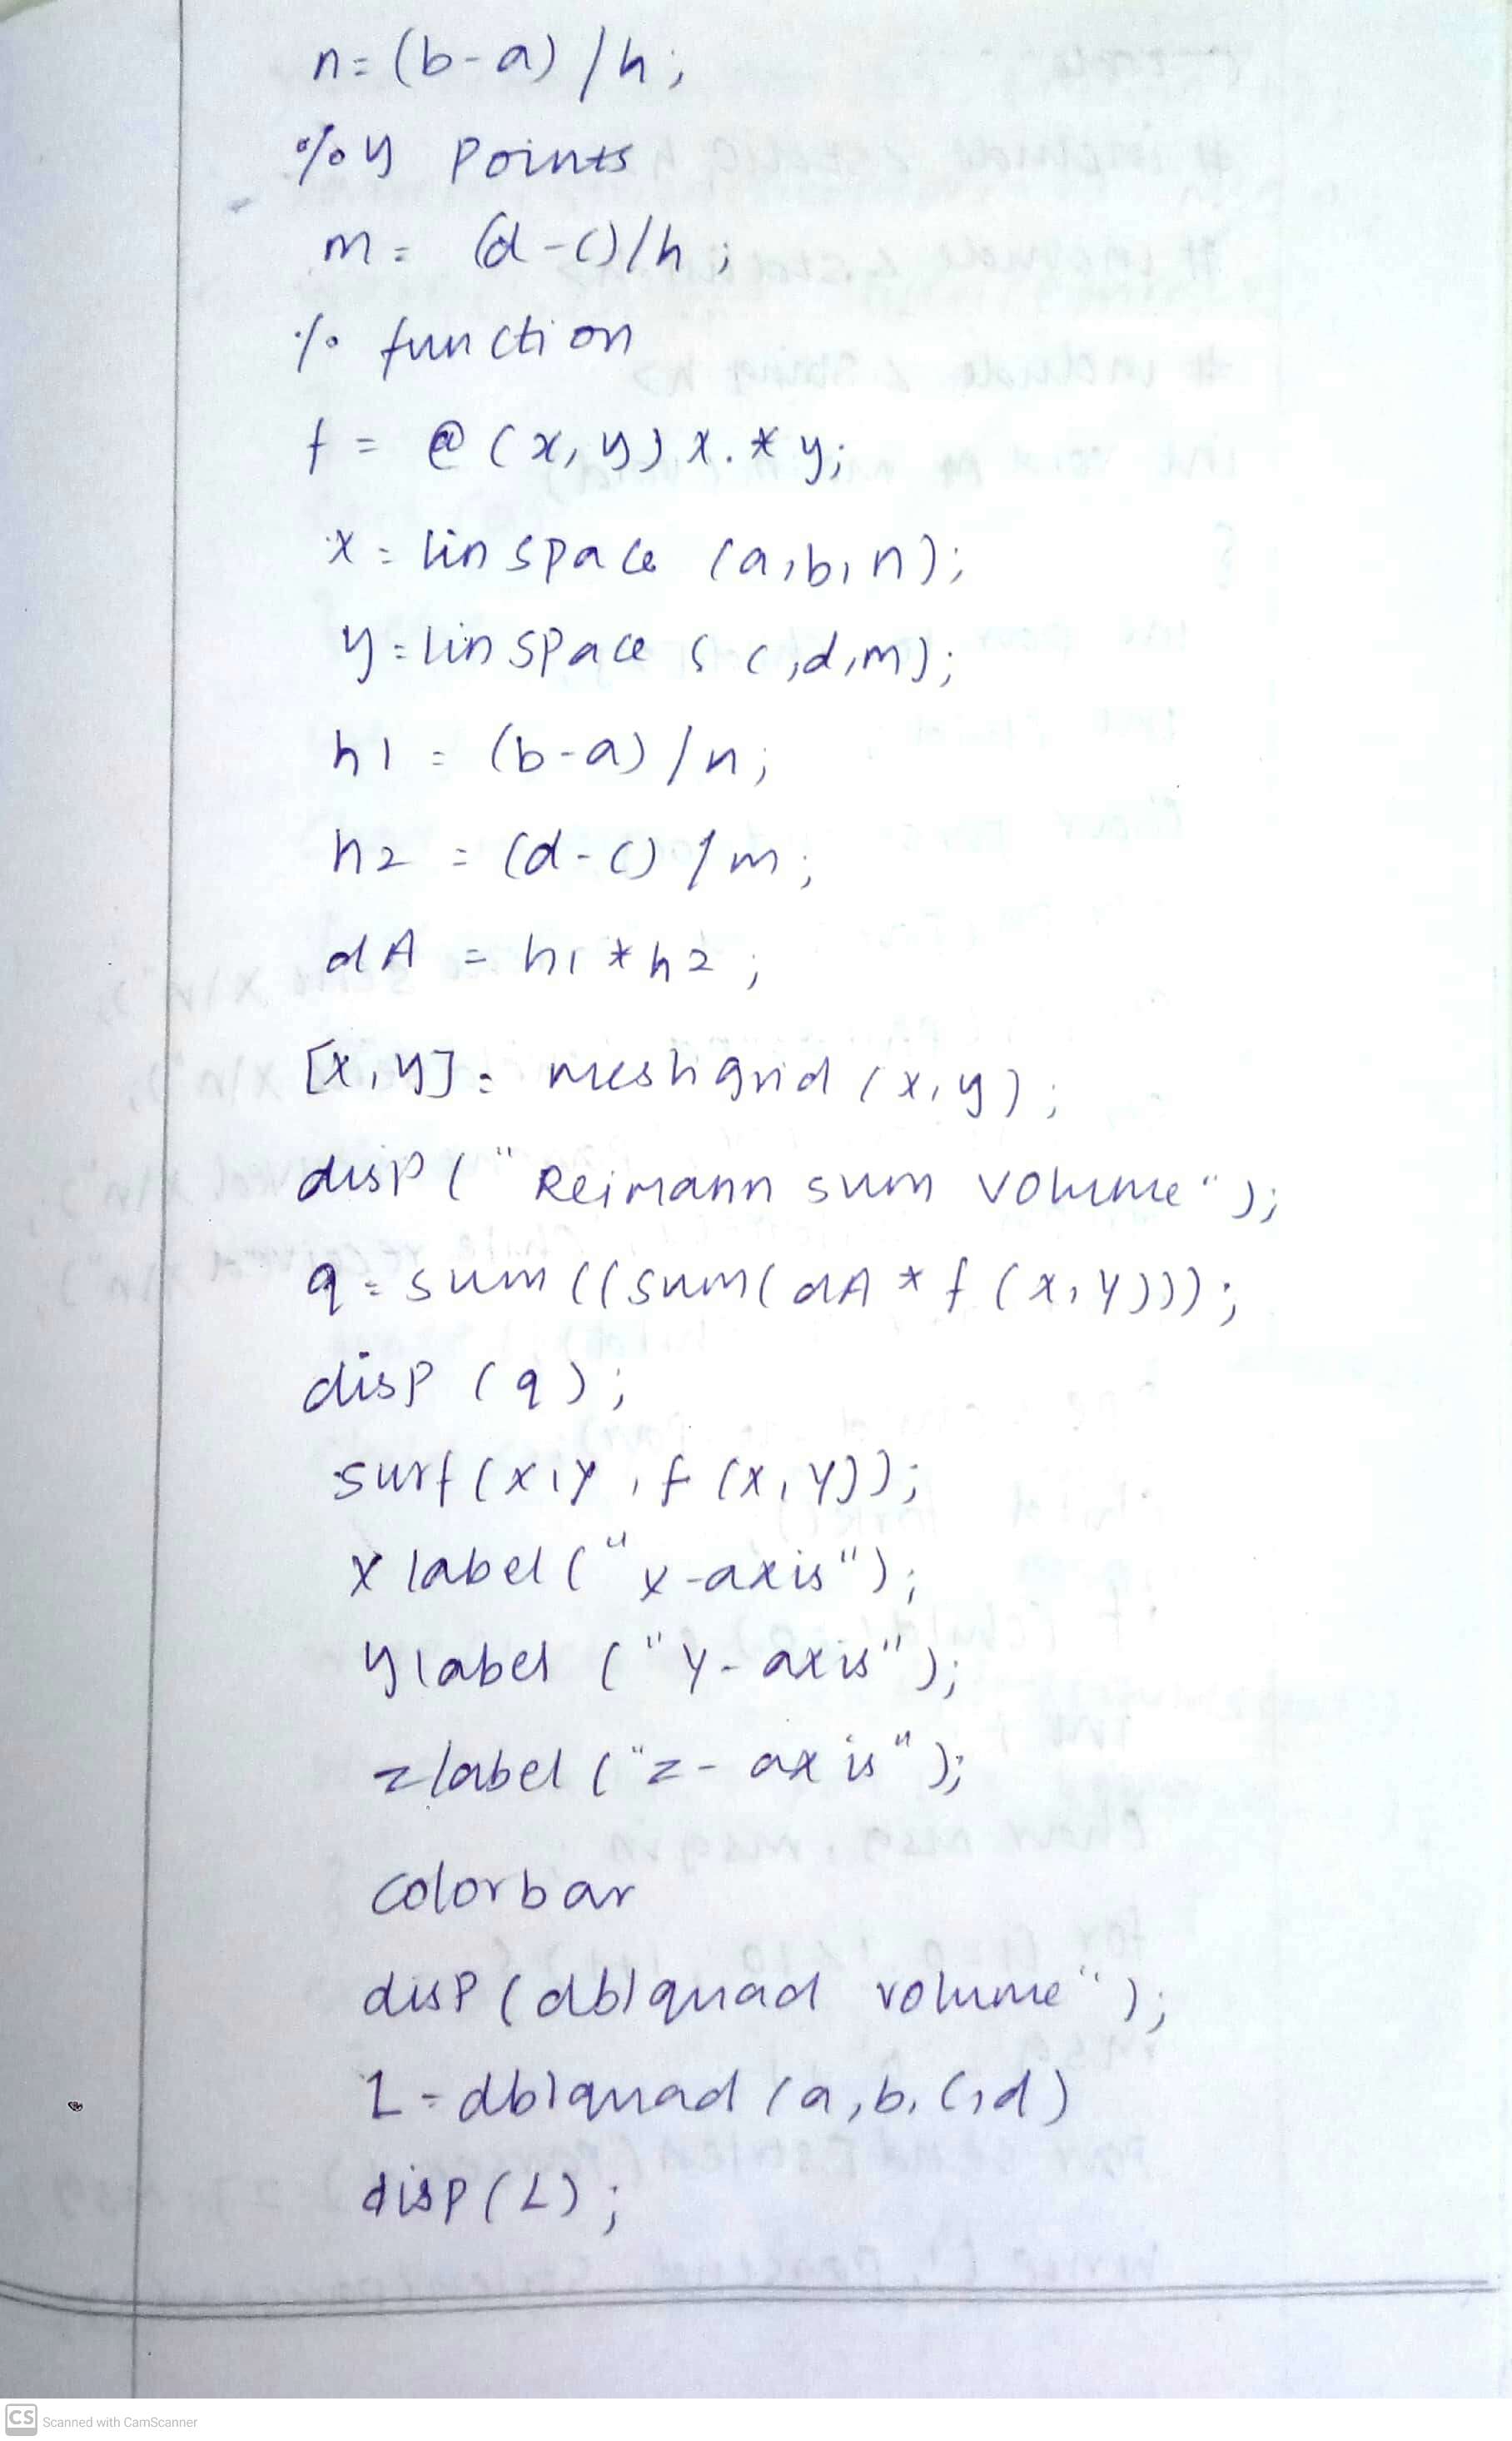 n=(b-a)/h;
% y points
m= (d-c)/h;
% function
f = @(x,y) x.*y;
x = linspace (a,b,n);
y = linspace (c,d,m);
h1 = (b-a)/n;
h2 = (d-c)/m;
dA = h1*h2;
[x,y]= meshgrid (x,y);
disp("Reimann sum volume");
q = sum((sum(dA * f(x,y)));
disp (q);
surf(x,y,f(x,y));
xlabel("x-axis");
ylabel ("y-axis");
zlabel ("z-axis");
colorbar
disp(dblquad volume");
L = dblquad (a,b,c,d)
disp(L);
CS Scanned with CamScanner